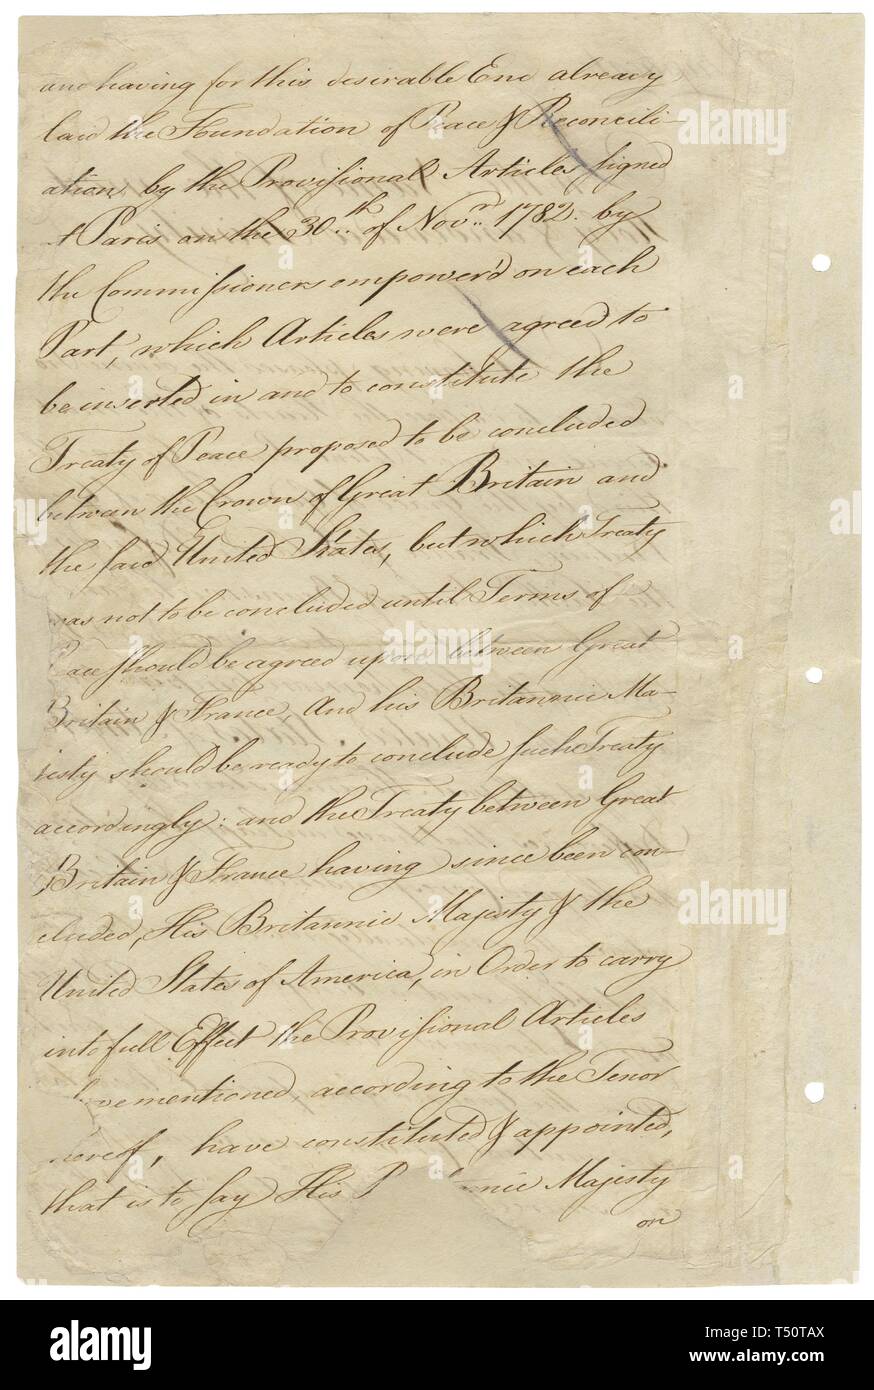 and having for this desirable End already
laid the Foundation of Peace & Reconcili-
ation by the Provisional Articles signed
t Paris on the 30.th of Nov.r 1782. by
the Commissioners empower'd on each
Part, which Articles were agreed to
be inserted in and to constitute the
Treaty of Peace proposed to be concluded
between the Crown of Great Britain and
the said United States, but which Treaty
was not to be concluded until Terms of
eace should be agreed upon between Great
Britain & France, And his Britannic Ma-
jesty should be ready to conclude such Treaty
accordingly: and the Treaty between Great
Britain & France having since been con-
cluded, His Britannic Majesty & the
United States of America, in Order to carry
into full Effect the Provisional Articles
ovementioned, according to the Tenor
hereof, have constituted & appointed,
that is to say His nnic Majesty
on
alamy
Image ID: T50TAX
www.alamy.com